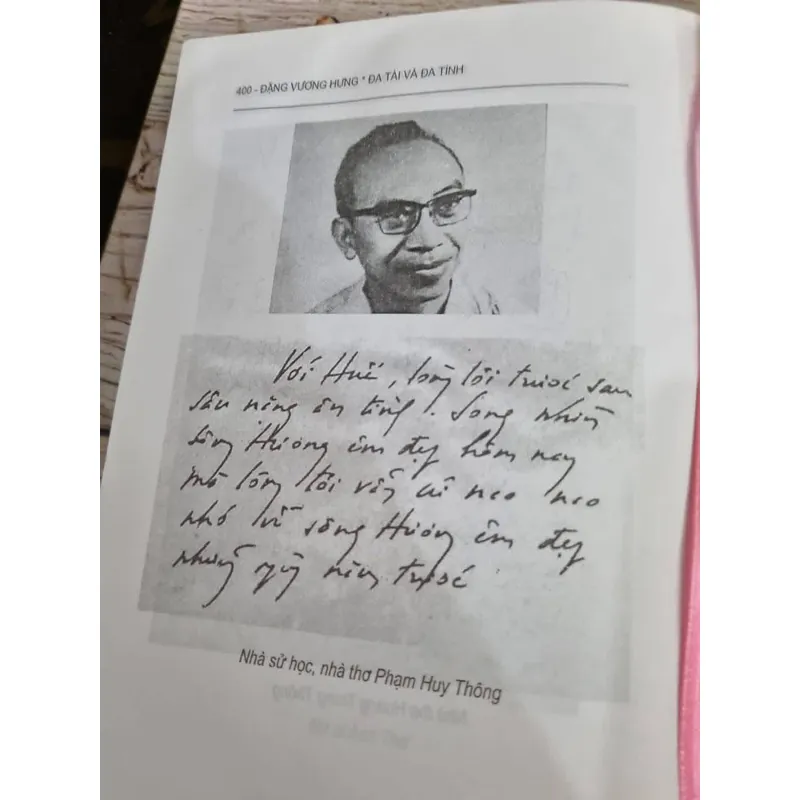 400 - ĐẶNG VƯƠNG HƯNG * ĐA TÀI VÀ ĐA TÌNH
Với Huế, lòng tôi trước sau
sâu nặng ân tình. Song nhìn
sông Hương êm đẹp hôm nay
mà lòng tôi vẫn cứ neo neo
nhớ về sông Hương êm đẹp
những ngày năm trước
Nhà sử học, nhà thơ Phạm Huy Thông